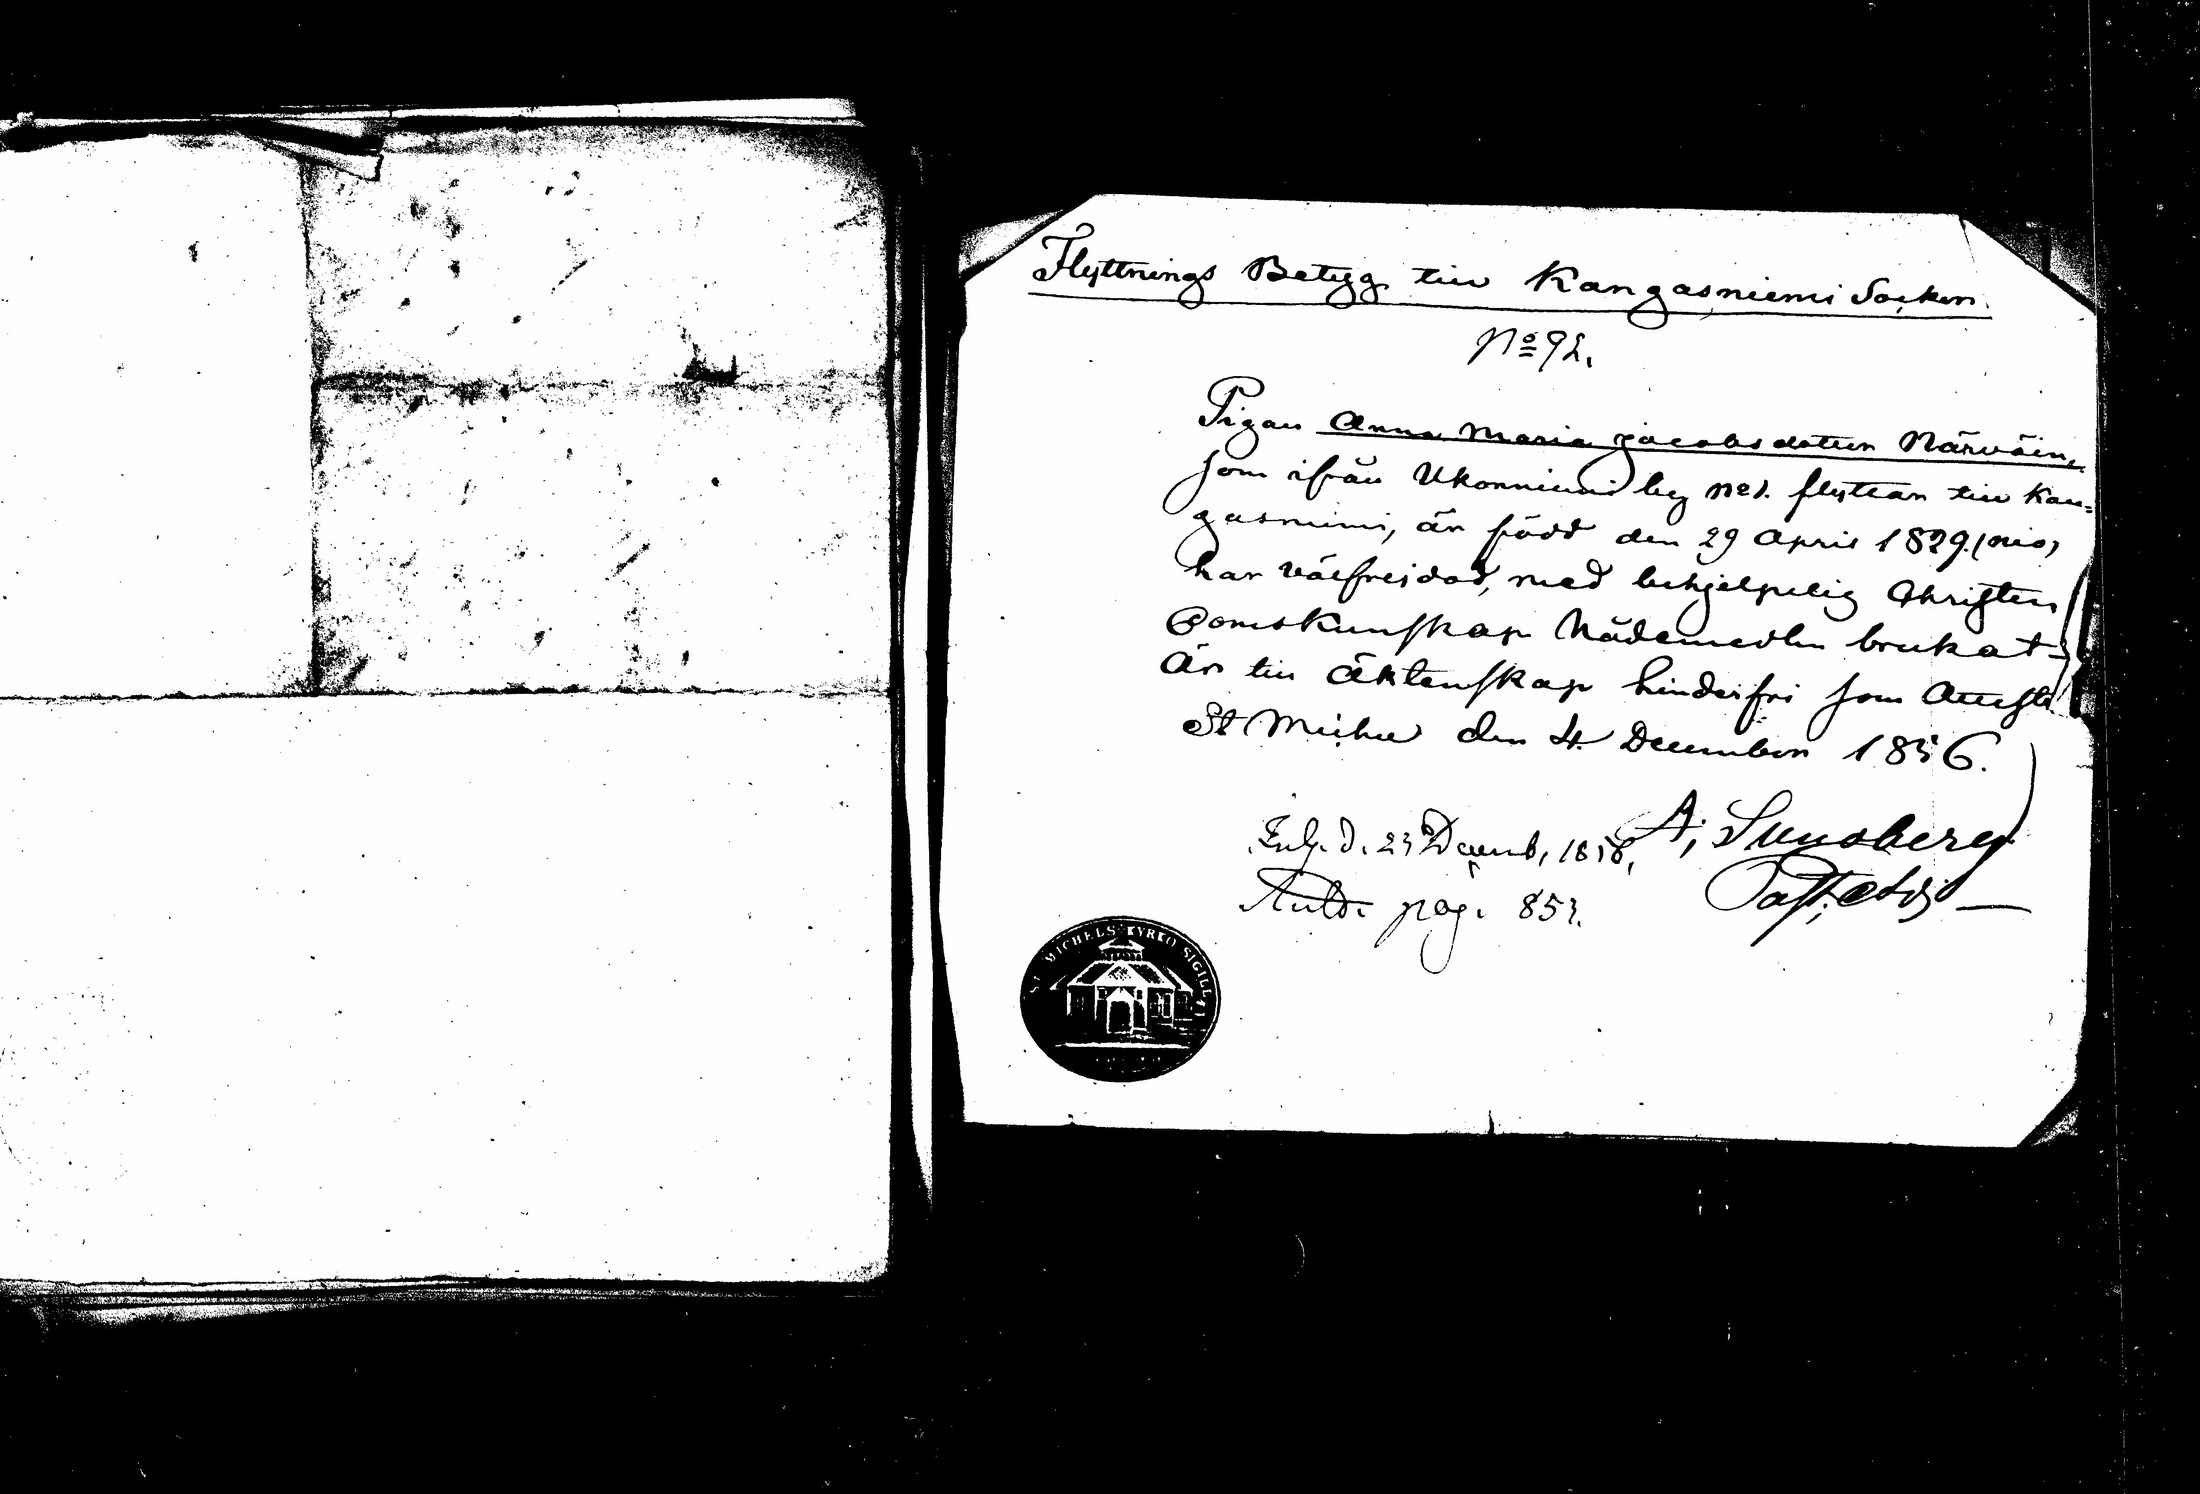 Flyttnings Betyg till Kangasniemi Socken.
No 92.
Pigan Anna Maria Jacobsdotter Närväin,
som ifrån Ukonniemi by No 1. flyttar till Kan=
gasniemi, är född den 29 April 1829. (nio)
har välfrejdad, med behjelpelig Christen
domskunskap Nådemedlen brukat
Är till Äktenskap hinderfri som Attest.
St Michel den 4 December 1856.
A, Sundberg
Past. Adj.
Inl. d. 23 Decemb, 1856,
pag. 853.
ST. MICHELS KYRKO SIGILL